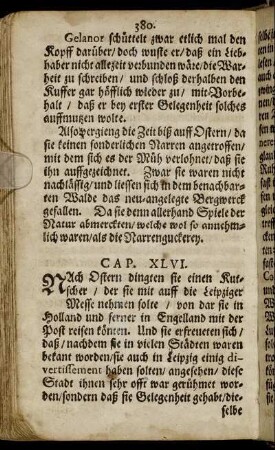 380.
Gelanor schüttelt zwar etlich mal den
Kopff darüber / doch wuste er / daß ein Lieb-
haber nicht allezeit verbunden wäre / die War-
heit zu schreiben / und schloß derhalben den
Kuffer gar höfflich wieder zu / mit Vorbe-
halt / daß er bey erster Gelegenheit solches
auffmutzen wolte.
Also vergieng die Zeit biß auff Ostern / da
sie keinen sonderlichen Narren angetroffen /
mit dem sich es der Müh verlohnet / daß sie
ihn auffgezeichnet. Zwar sie waren nicht
nachlässig / und liessen sich in dem benachbar-
ten Walde das neu-angelegte Bergwerck
gefallen. Da sie denn allerhand Spiele der
Natur abmerckten / welche wol so annehm-
lich waren / als die Narrenguckerey.
CAP. XLVI.
NAch Ostern dingten sie einen Kut-
scher / der sie mit auff die Leipziger
Messe nehmen solte / von dar sie in
Holland und ferner in Engelland mit der
Post reisen könten. Und sie erfreueten sich /
daß / nachdem sie in vielen Städten waren
bekant worden / sie auch in Leipzig einig di-
vertissement haben solten / angesehen / diese
Stadt ihnen sehr offt war gerühmet wor-
den / sondern daß sie Gelegenheit gehabt / die-
selbe